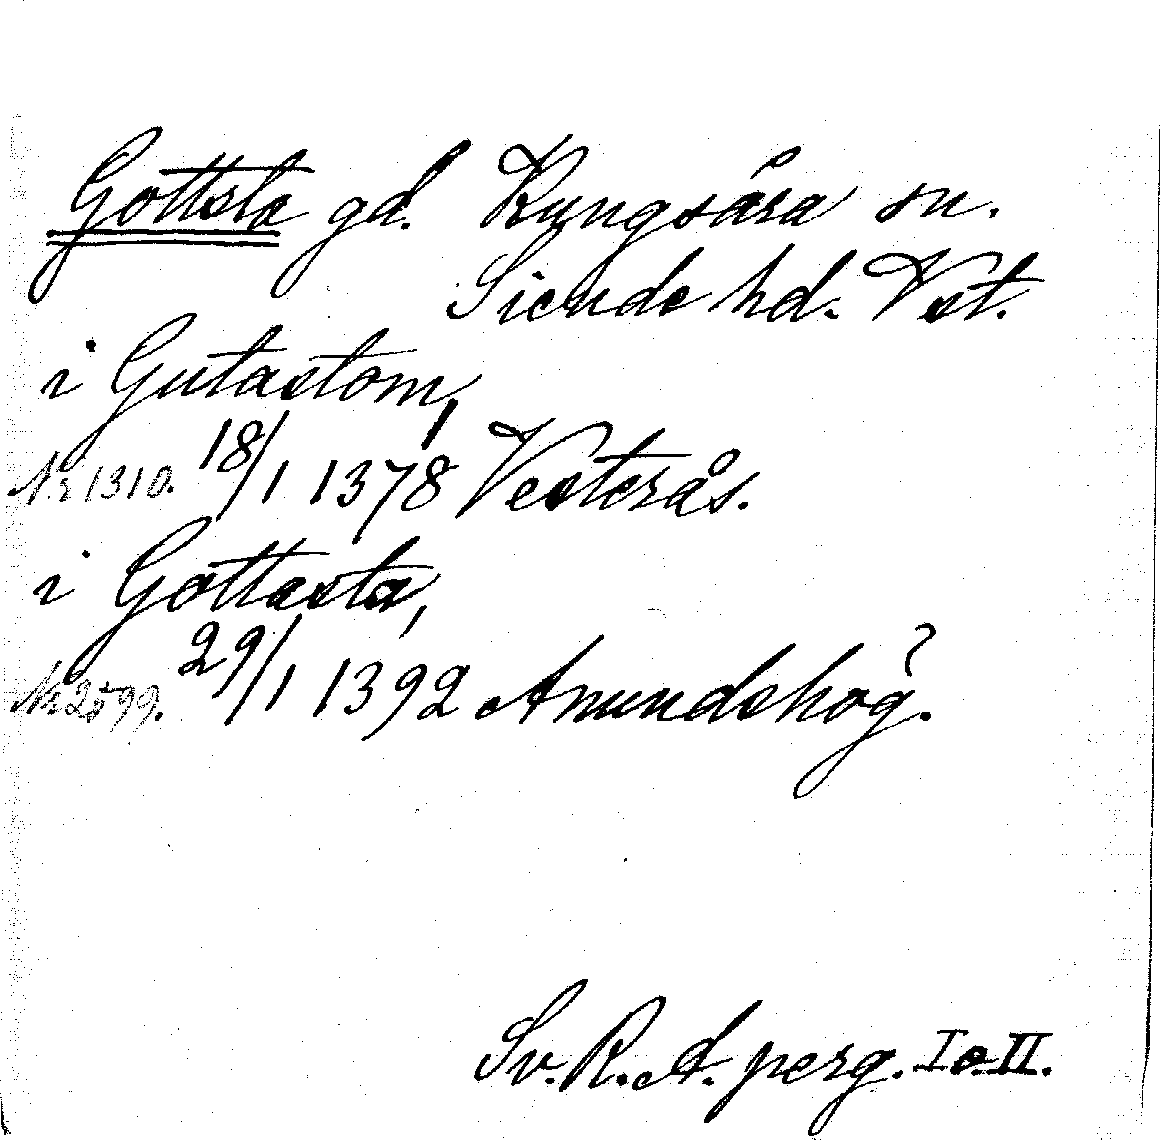 Gottsta gd. Kungsåra sn.
Siende hd. Vst.
i Gutastom,
Nr 1310. 18/1 1378 Vesterås.
i Gottasta,
Nr 2599. 29/1 1392 Anundshög.
Sv. R. A. perg. I o. II.